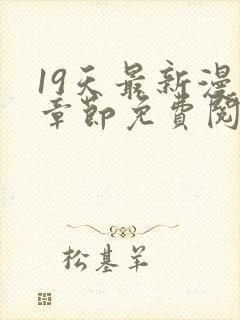 19天最新漫
章節免費閱
松基羊